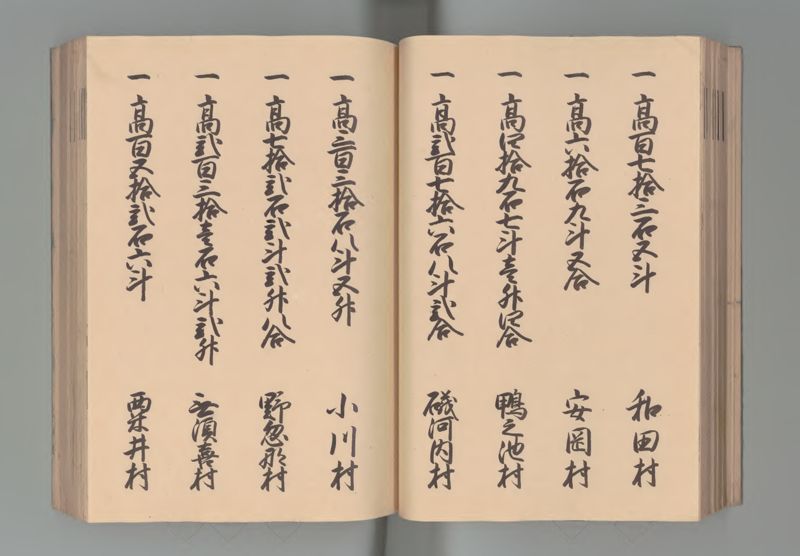 一 高百七拾三石五斗 和田村
一 高六拾石九斗五合 安岡村
一 高四拾九石七斗壱升四合 鴨之池村
一 高弐百七拾六石八斗弐合 磯河内村
一 高三百三拾石八斗五升 小川村
一 高七拾弐石弐斗弐升八合 野忽那村
一 高弐百三拾壱石六斗弐升 無須喜村
一 高百五拾弐石六斗 粟井村